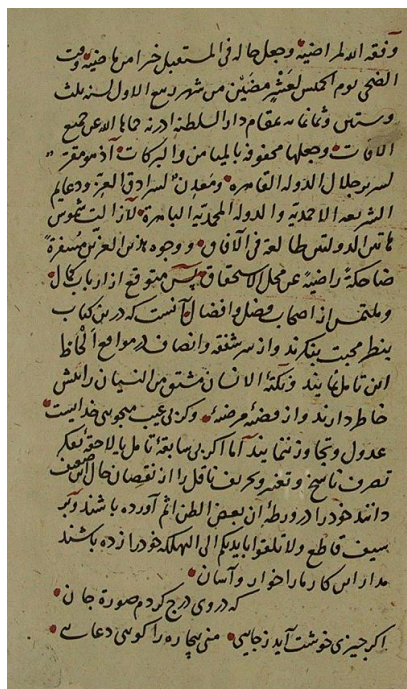 وفقه الله لمراضيه وجعل حاله فى المستقبل خيرا من ماضيه وقت
الضحى يوم الخميس لعشر مضين من شهر ربيع الاول لسنه ثلث
وستين وثمانمايه بمقام دار السلطنه ادرنه حماها الله عن جميع
الافات وجعلها محفوفه بالميامن والبركات اذ هو مقر
لسرير جلال الدوله القاهره ومعدن لسرادق العز ودعايم
الشريعه الاحمديه والدوله المحمديه الباهره لازالت شموس
هاتين الدولتين طالعة فى الآفاق ووجوه هذين العزين مسفرة
ضاحكة راضية عن محل الاستحقاق پس متوقع از ارباب كمال
وملتمس از اصحاب فضل وافضال آنست كه درين كتاب
بنظر محبت بنگرند واز سر شفقه وانصاف در مواقع الحاظ
اين تامل نمايند ونكتة الانسان مشتق من النسيان را نقش
خاطر دارند واز قضيه مرضيه وكر بى عيب ميجويى خداست
عدول وتجاوز ننمايند اما اكر بى سابقه تامل يا لاحقه تفكر
تصرف ناسخ وتغير وتحريف ناقل را از نقصان حال اين ضعيف
دانند خود را در ورطه ان بعض الظن اثم آورده باشند وبر
سيف قاطع ولا تلقوا بايديكم الى التهلكه خود را زده باشند
مدار اين كار ما را خوار وآسان
كه در وى درج كردم صورة جان
اكر چيزى خوشت آيد ز جايى من بيچاره را كوسى دعايى